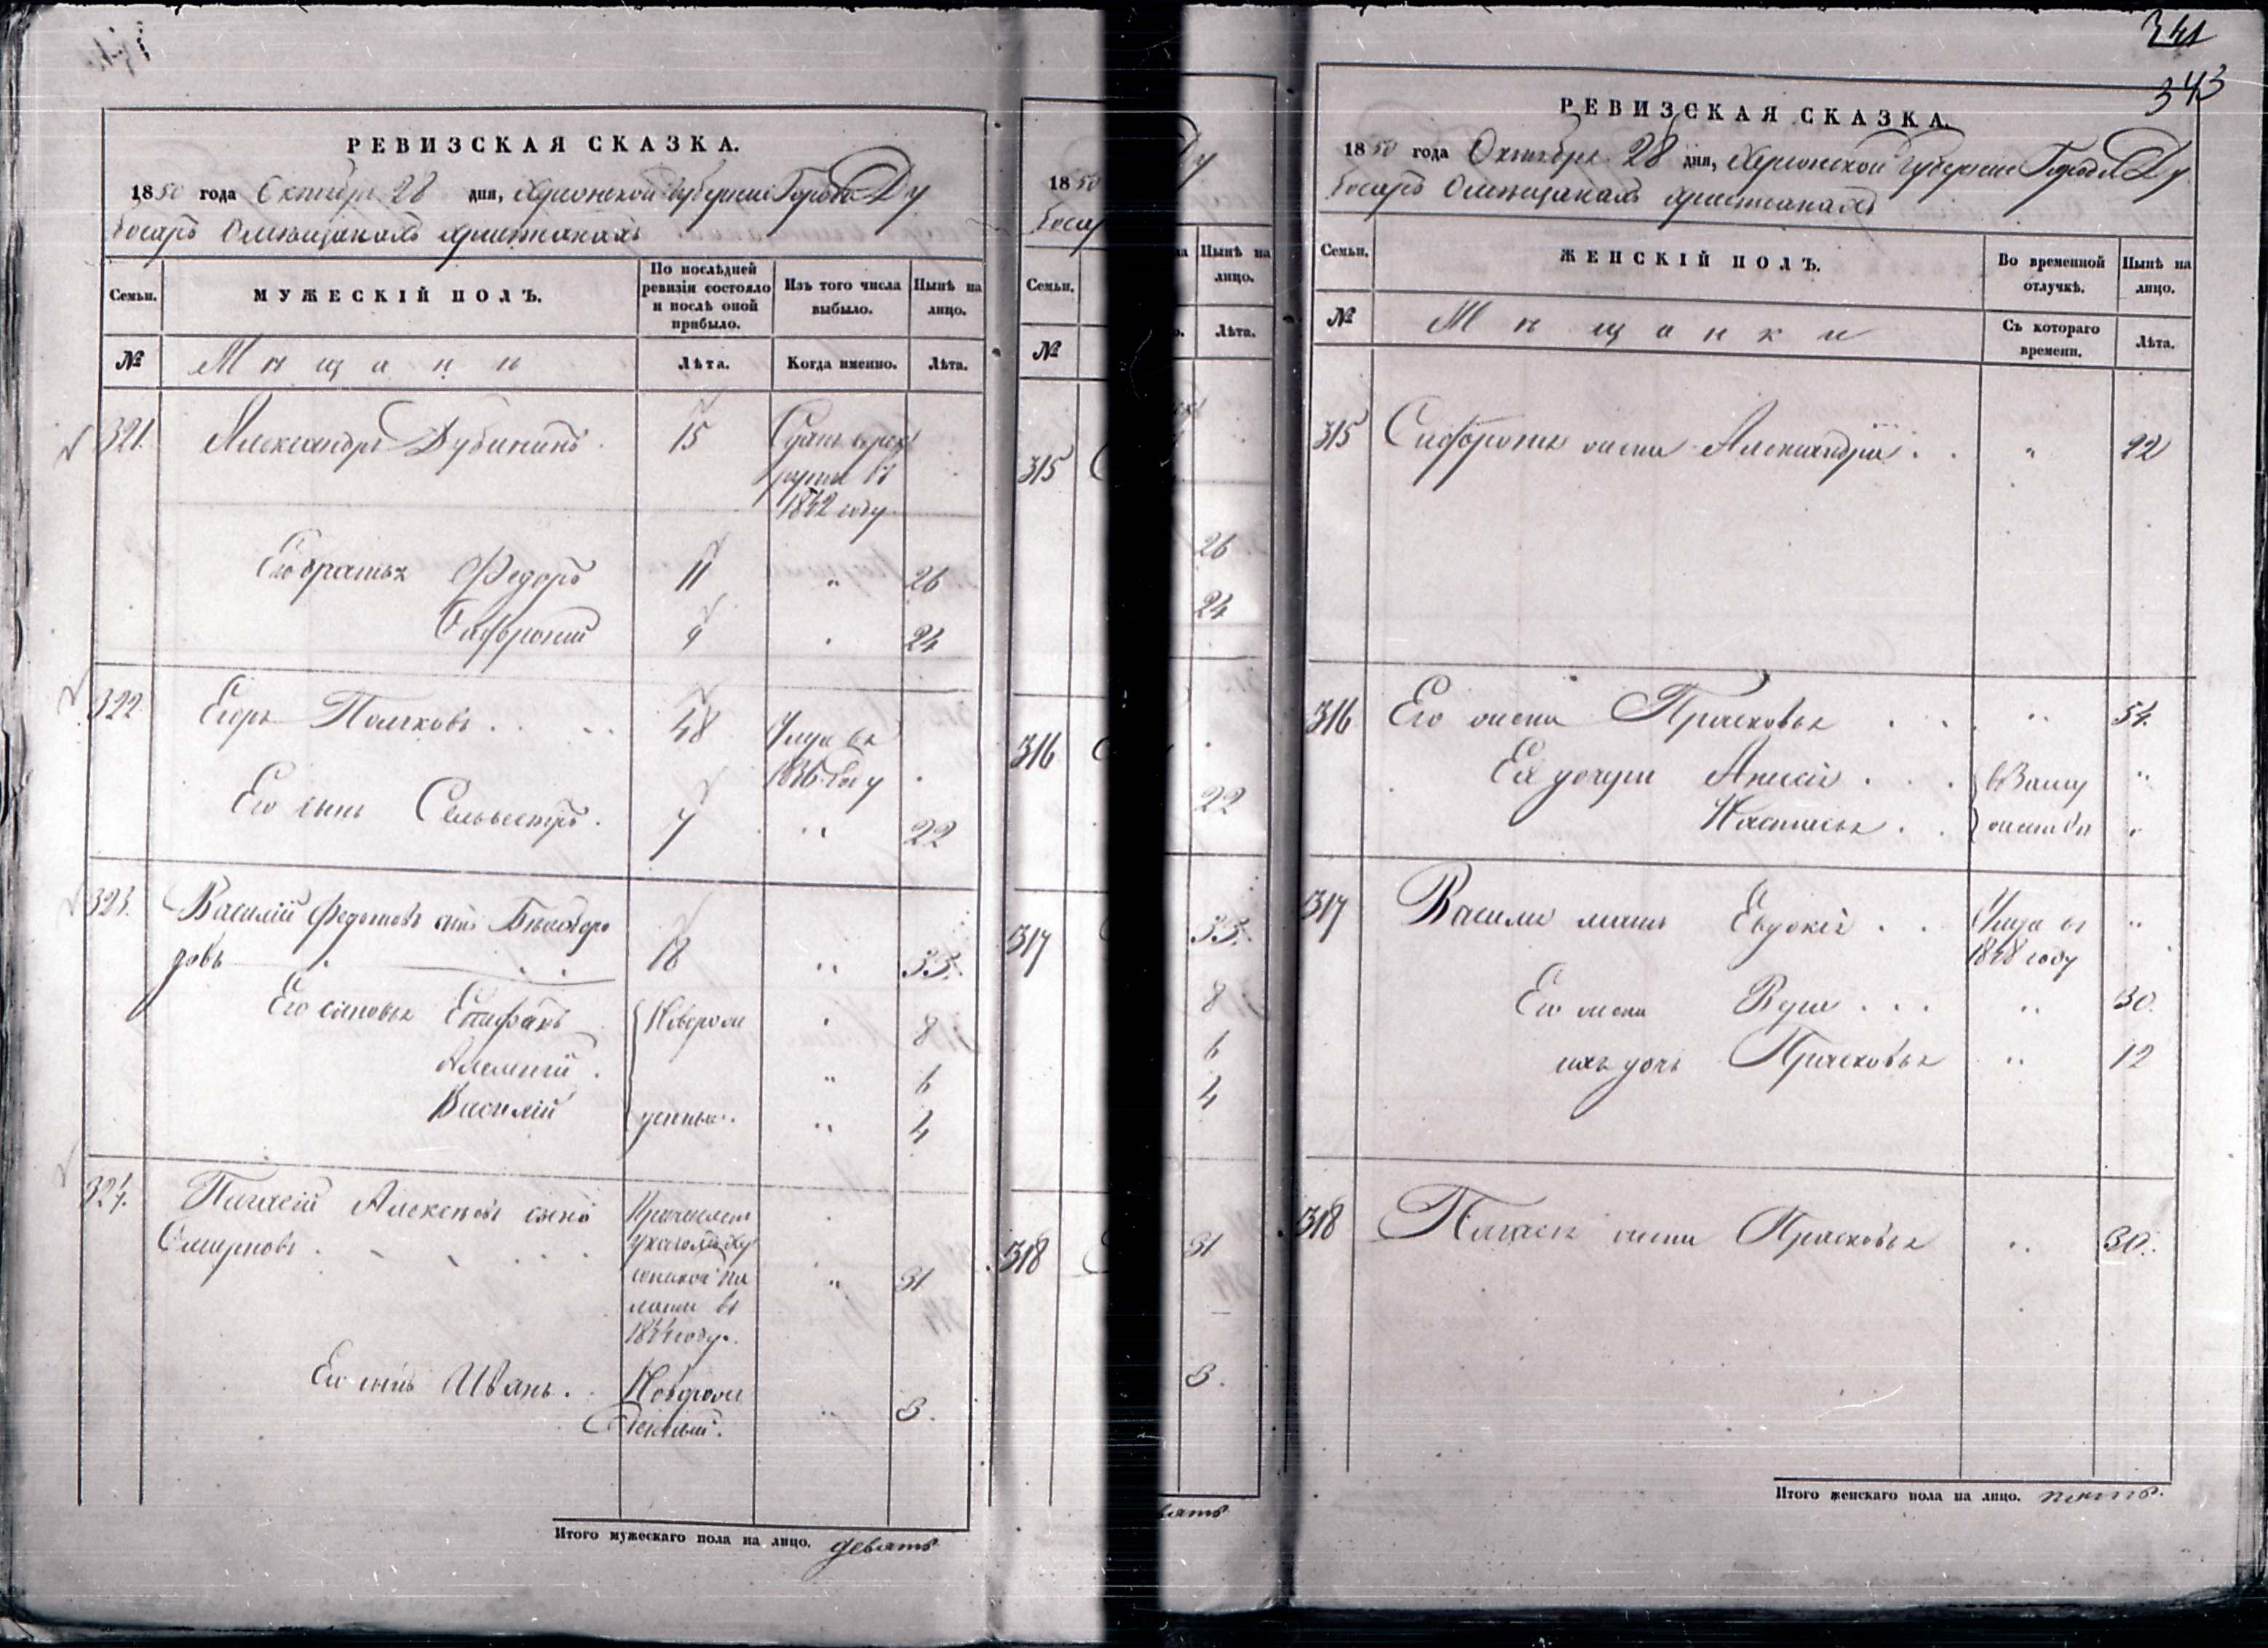 РЕВИЗСКАЯ СКАЗКА.
1850 года Октября 28 дня, Херсонской Губернии Города Ду
босаръ О мѣщанахъ христианахъ
Семьи.
МУЖЕСКІЙ ПОЛЪ.
По послѣдней ревизіи состояло и послѣ оной прибыло.
Изъ того числа выбыло.
Нынѣ на лицо.
№
Мѣщанѣ
Лѣта.
Когда именно.
Лѣта.
321. Александръ Дубининъ. 15 Сданъ в рек
руты въ
1842 году
Его братья Федоръ 11 " 26
Софроній 9 " 24
322 Егоръ Поляковъ . . . . 48 Умре въ
1836 году
Его сынъ Сельвестръ . 7 " 22
323. Василій Федотовъ сынъ Бѣлобро
довъ 18 " 33.
Его сыновья Епифанъ Новорож 8
Алексѣй . " 6
Василій денные. " 4
324. Алексѣевъ сынъ
Смирновъ . . . . Причислен
указомъ Хер
сонской Па
латы въ
1844 году. " 31
Его сынъ Иванъ . . Новорож
денный. " 3.
Итого мужескаго пола на лицо. девять
1850
босар
Семьи.
№
315
316
317
318
Ду
Нынѣ на лицо.
Лѣта.
26
24
22
33.
8
6
4
31
3.
вять
341
343
РЕВИЗСКАЯ СКАЗКА.
1850 года Октября 28 дня, Херсонской Губернии Города Ду
босаръ О мѣщанахъ христианахъ
Семьи.
ЖЕНСКІЙ ПОЛЪ.
Во временной отлучкѣ.
Нынѣ на лицо.
№
Мѣщанки
Съ котораго времени.
Лѣта.
315 Софронія жена Александра . . " 22
316 Его жена Прасковья . . . " 54.
Ея дочери Анисія . . . в Заму "
Настасья . . жествѣ "
317 Василія мать Евдокія . . Умре въ "
1848 году
Его жена . . . " 30.
ихъ дочь Прасковья " 12
318 жена Прасковья " 30.
Итого женскаго пола на лицо. пять.